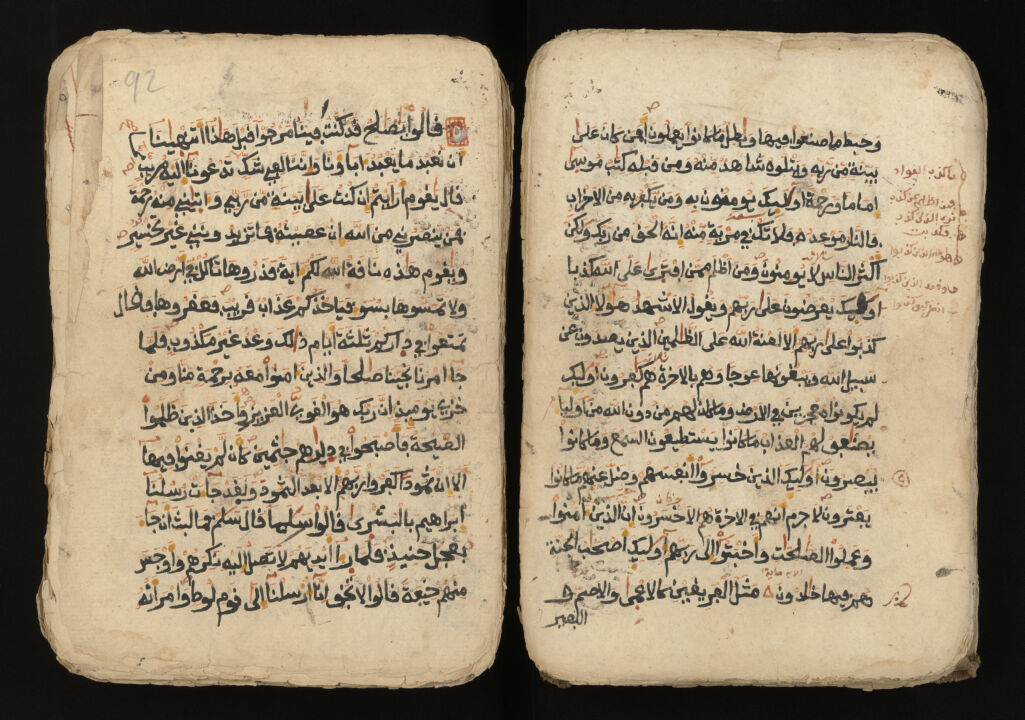 وحبط ما صنعوا فيها وبطل ما كانوا يعملون افمن كان على
بينة من ربه ويتلوه شاهد منه ومن قبله كتب موسى
اماما ورحمة اوليك يومنون به ومن يكفر به من الاحزاب
فالنار موعده فلا تك في مرية منه انه الحق من ربك ولكن
اكثر الناس لا يومنون ومن اظلم ممن افترى على الله كذبا
اوليك يعرضون على ربهم ويقول الاشهد هولا الذين
كذبوا على ربهم الا لعنة الله على الظلمين الذين يصدون عن
سبيل الله ويبغونها عوجا وهم بالاخرة هم كفرون اوليك
لم يكونوا معجزين في الارض وما كان لهم من دون الله من اوليا
يضعف لهم العذاب ما كانوا يستطيعون السمع وما كانوا
يبصرون اوليك الذين خسروا انفسهم وضل عنهم ما كانوا
يفترون لا جرم انهم في الاخرة هم الاخسرون ان الذين امنوا
وعملوا الصلحت واخبتوا الى ربهم اوليك اصحب الجنة
هم فيها خلدون مثل الفريقين كالاعمى والاصم و
البصير
92
قالوا يصلح قد كنت فينا مرجوا قبل هذا اتنهينا
ان نعبد ما يعبد اباونا واننا لفي شك مما تدعونا اليه مريب
قال يقوم ارايتم ان كنت على بينة من ربي واتيني منه رحمة
فمن ينصرني من الله ان عصيته فما تزيدونني غير تخسير
ويقوم هذه ناقة الله لكم اية فذروها تاكل في ارض الله
ولا تمسوها بسو فياخذكم عذاب قريب فعقروها فقال
تمتعوا في داركم ثلثة ايام ذلك وعد غير مكذوب فلما
جا امرنا نجينا صلحا والذين امنوا معه برحمة منا ومن
خزي يوميذ ان ربك هو القوي العزيز واخذ الذين ظلموا
الصيحة فاصبحوا في ديرهم جثمين كان لم يغنوا فيها
الا ان ثمودا كفروا ربهم الا بعدا لثمود ولقد جات رسلنا
ابراهيم بالبشرى قالوا سلما قال سلم فما لبث ان جا
بعجل حنيذ فلما را ايديهم لا تصل اليه نكرهم واوجس
منهم خيفة قالوا لا تخف انا ارسلنا الى قوم لوط وامراته